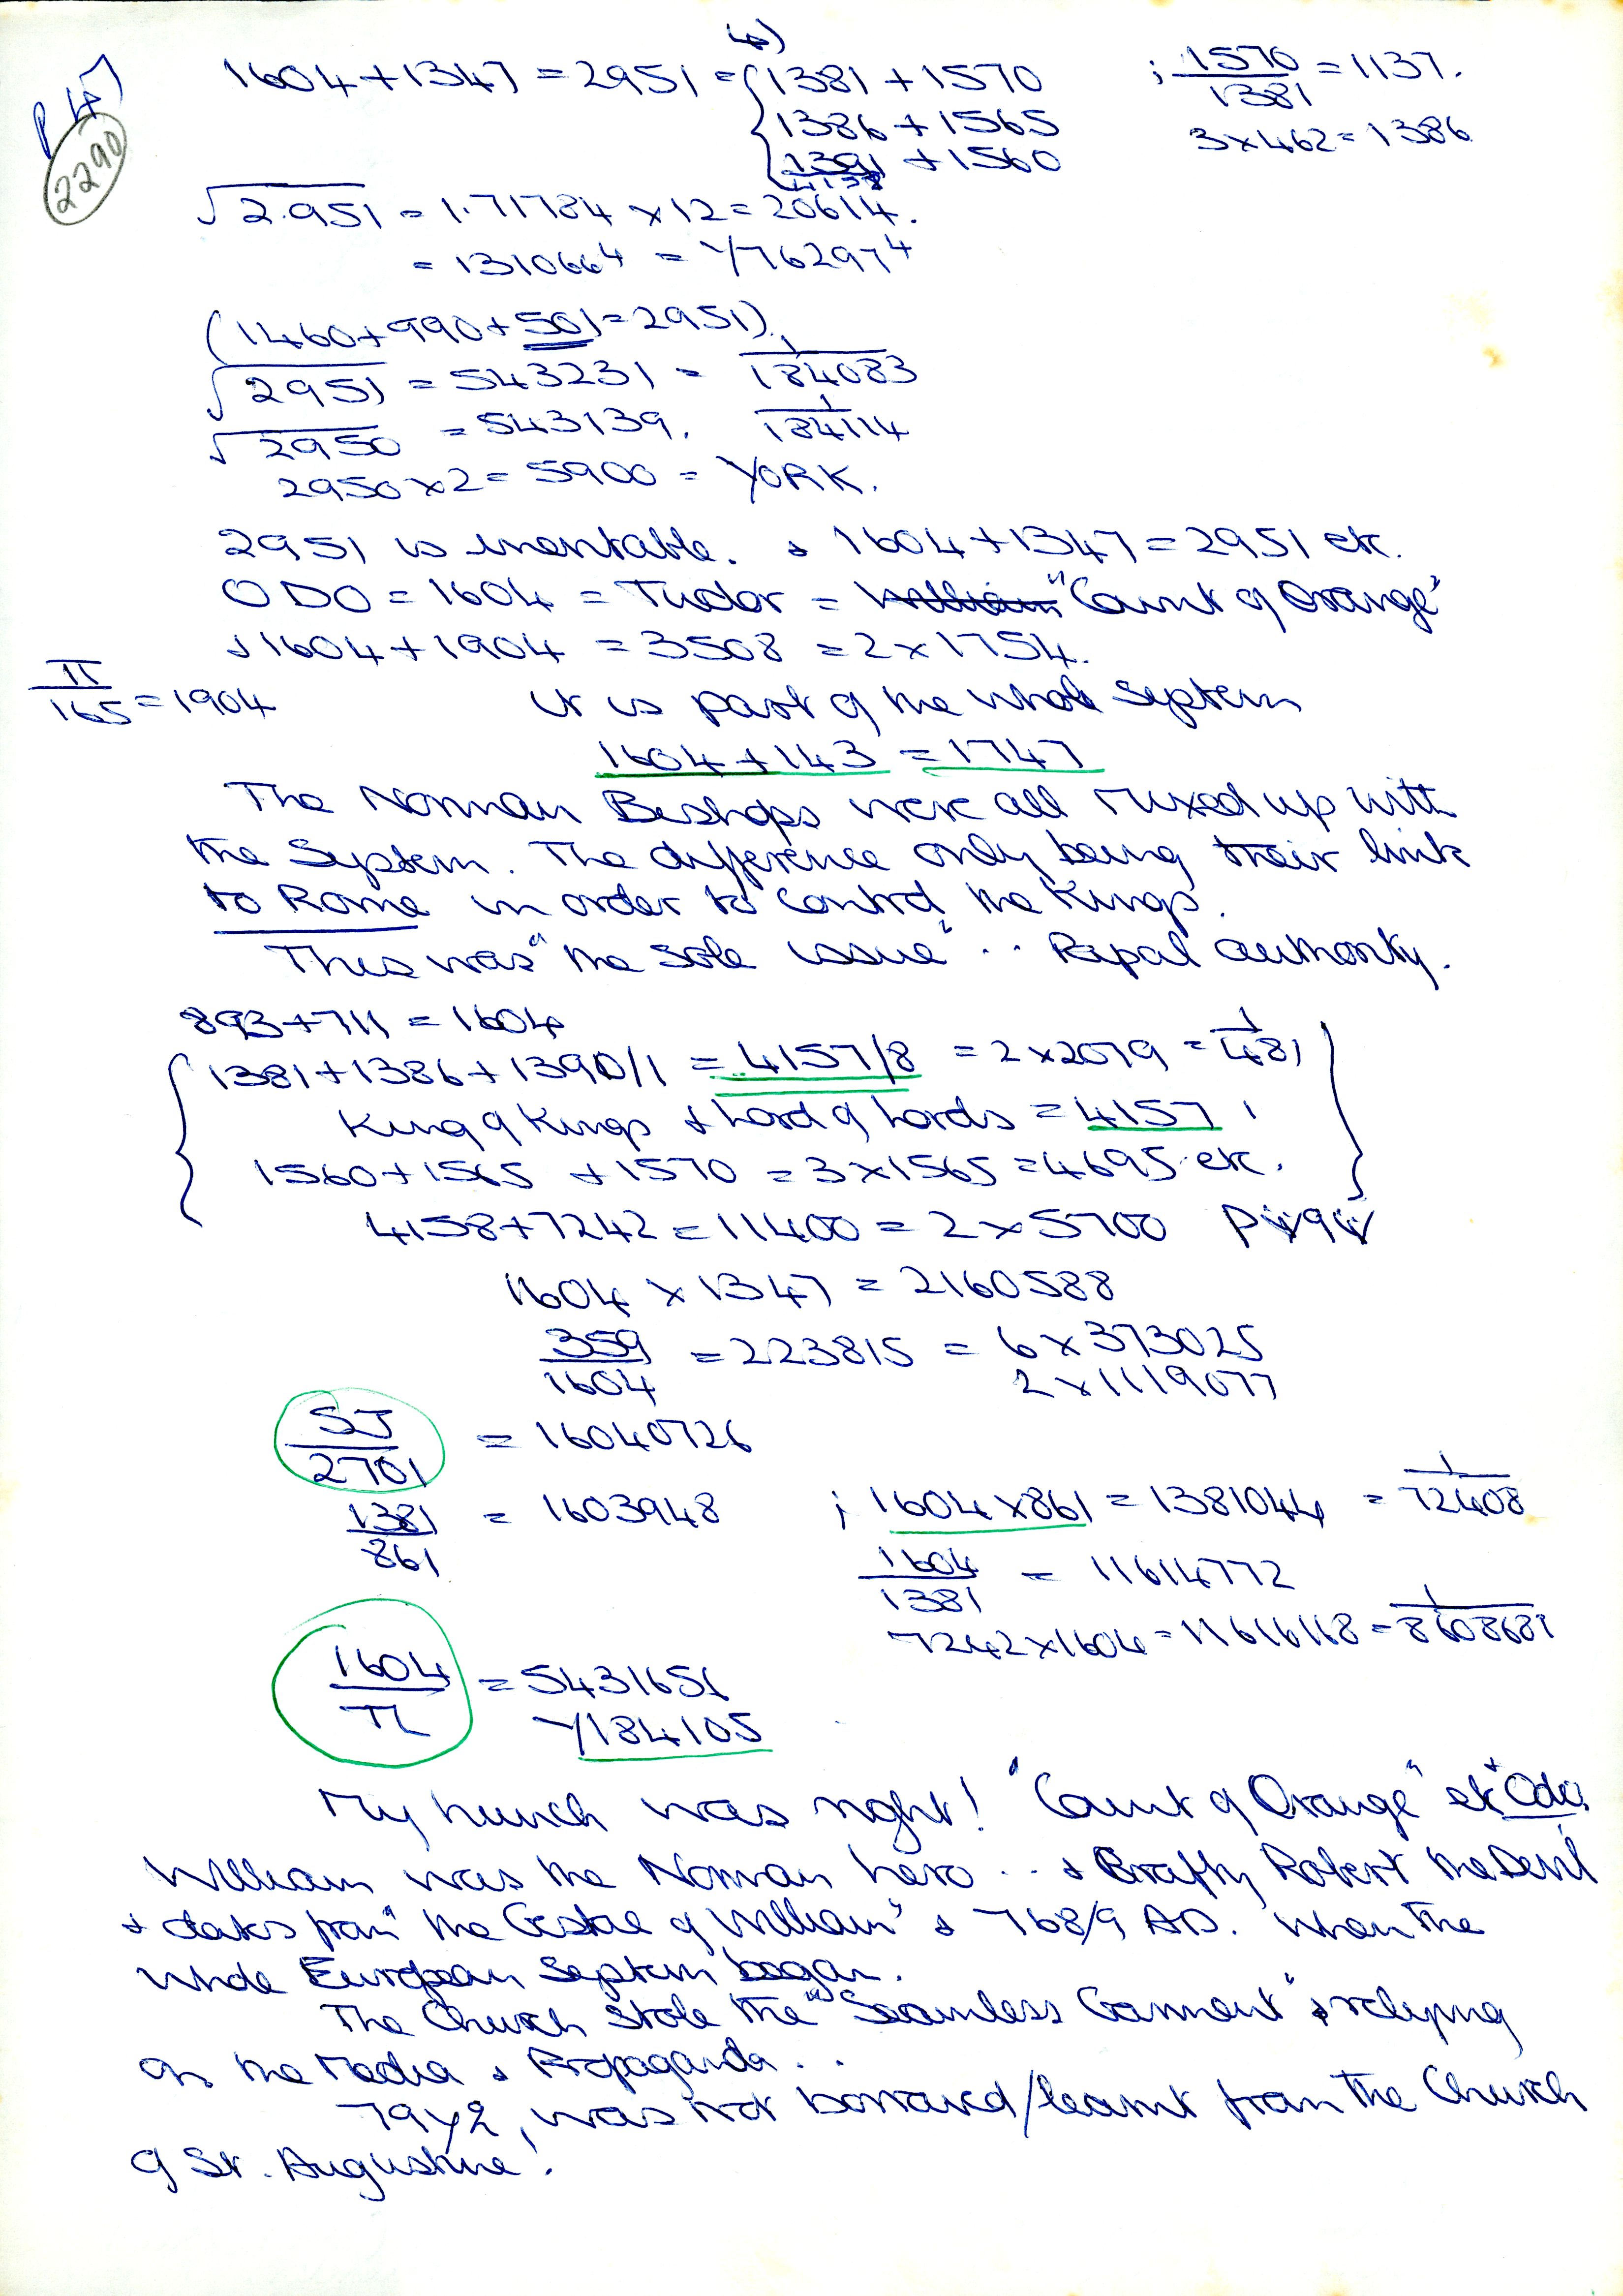 4)
p 4)
2290
1604+1347 = 2951 = 1381 + 1570 ; 1570/1381 = 1137.
1386 + 1565 3×462 = 1386
1391 + 1560
4158
√2.951 = 1.71784 × 12 = 20614.
= 131066⁴ = 1/76297⁴
(1460+990+501=2951).
√2951 = 543231 = 1/184083
√2950 = 543139. 1/184114
2950×2 = 5900 = YORK.
2951 is inevitable. & 1604+1347 = 2951 etc.
ODO = 1604 = Tudor = William "Count of Orange"
& 1604+1904 = 3508 = 2×1754.
π/165 = 1904 It is part of the whole System
1604+143 = 1747
The Norman Bishops were all mixed up with
the System. The difference only being their link
to Rome in order to control the Kings.
This was "the sole issue" .. Papal authority.
893+711 = 1604
1381+1386+1390/1 = 4157/8 = 2×2079 = 1/481
King of Kings & Lord of Lords = 4157
1560+1565 +1570 = 3×1565 = 4695 etc.
4158+7242 = 11400 = 2×5700
1604 × 1347 = 2160588
359/1604 = 223815 = 6×373025
2×1119077
SJ/2701 = 16040726
1381/861 = 1603948 ; 1604×861 = 1381044 = 1/72408
1604/1381 = 11614772
7242×1604 = 11616168 = 1/8608681
1604/π = 5431651
1/184105
My hunch was right! "Count of Orange" etc & Odo.
William was the Norman hero .. & Crafty Robert the Devil
& dates from "the Geste of William" & 768/9 AD. When the
whole European System began.
The Church stole the "Seamless Garment" & relying
on the Media & Propaganda ..
79 y 2, was not borrowed/learnt from the Church
of St. Augustine!